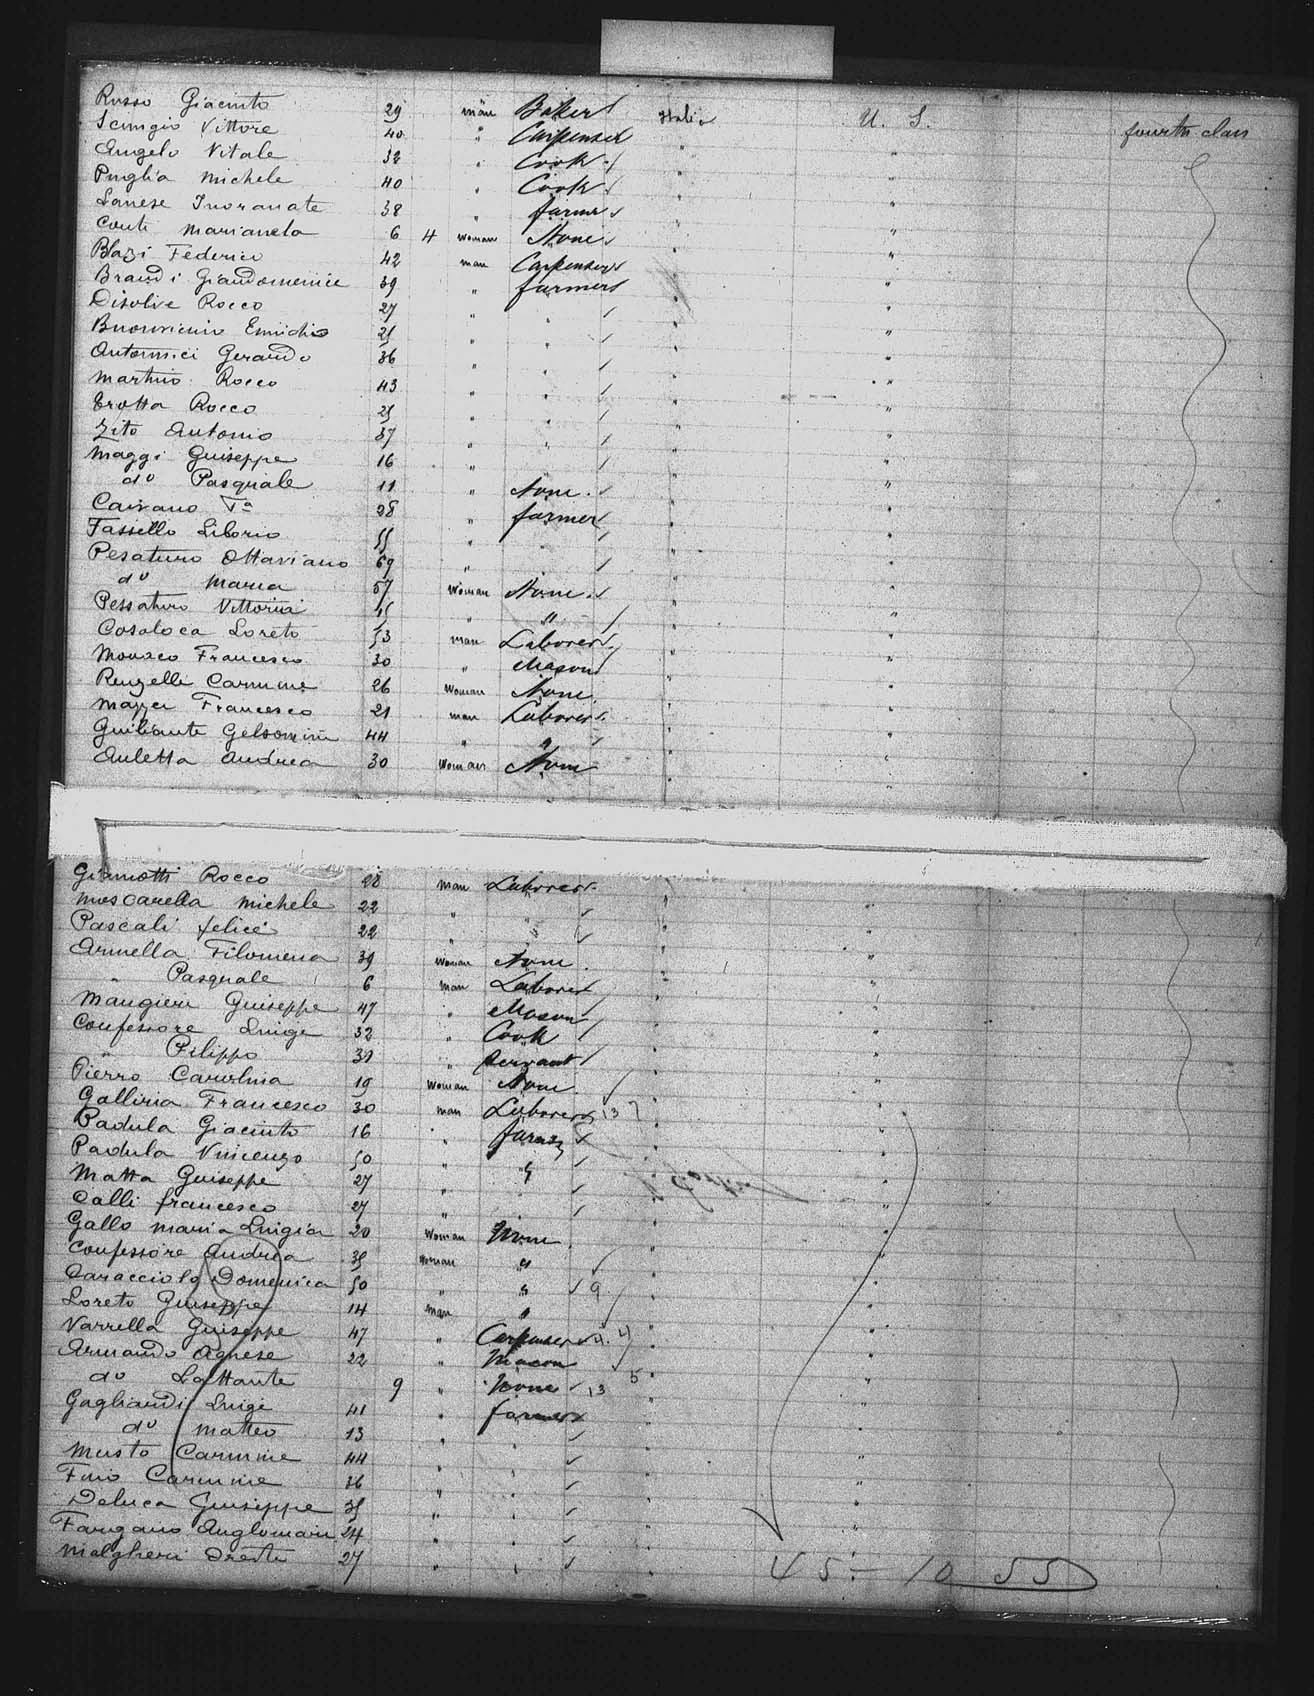 Russo Giacinto 29 man Baker Italia U. S. fourth class
Scinigio Vittore 40 " Carpenser " "
Angelo Vitale 32 " Cook " "
Puglia Michele 40 " Cook " "
Lanese Inoranate 38 " farmer " "
Conti Marianela 6 4 woman None " "
Blazi Federico 42 man Carpenser " "
Brandi Giandomenico 39 " farmer " "
Disolve Rocco 27 " " " "
Buonvicino Emidio 25 " " " "
Antonnici Gerardo 36 " " " "
Martino Rocco 43 " " " "
Trotta Rocco 25 " " " "
Zito Antonio 37 " " " "
Maggi Guiseppe 16 " " "
do Pasquale 11 " None " "
Cairano Va 28 " farmer " "
Fasiello Liborio 55 " " " "
Pesaturo Ottaviano 69 " " "
do Maria 57 Woman None " "
Pessaturo Vittoria " " " "
Cosoloca Loreto 53 man Laborer " "
Monaco Francesco 30 " Mason " "
Renzelli Carmine 26 Woman None " "
Mazzei Francesco 21 man Laborer " "
Guiliante Gelsomini 44 " " " "
Auletta Andrea 30 Woman None " "
Giamotti Rocco 28 man Laborer " "
Moscarella Michele 22 " " " "
Pascali felice 22 " " " "
Armella Filomena 39 Woman None " "
" Pasquale 6 man Laborer " "
Mangieri Guiseppe 47 " Mason " "
Confessore Luigi 32 " Cook " "
" Filippo 31 " Servant " "
Pierro Carolina 19 Woman None " "
Gallina Francesco 30 man Laborer 13 7 " "
Padula Giacinto 16 " farmer " "
Padula Vincenzo 50 " " " "
Matta Guiseppe 27 " " "
Calli francesco 27 " " "
Gallo Maria Luigia 20 Woman None " "
Confessore Andrea 35 Woman " " "
Caracciolo Domenica 50 " " 9 " "
Loreto Guiseppe 14 man " " "
Varrella Guiseppe 47 " Carpenser 4. 4 " "
Armando Agnese 22 " Mason " "
do Lattante 9 " None 13 5 " "
Gagliardi Luigi 41 " farmer " "
do Matteo 13 " " " "
Musto Carmine 44 " " " "
Fino Carmine 36 " " " "
Deluca Guiseppe 35 " " " "
Fargano Anglomari 24 " " " "
Malgheri Oreste 27 " " " "
45 - 10 55